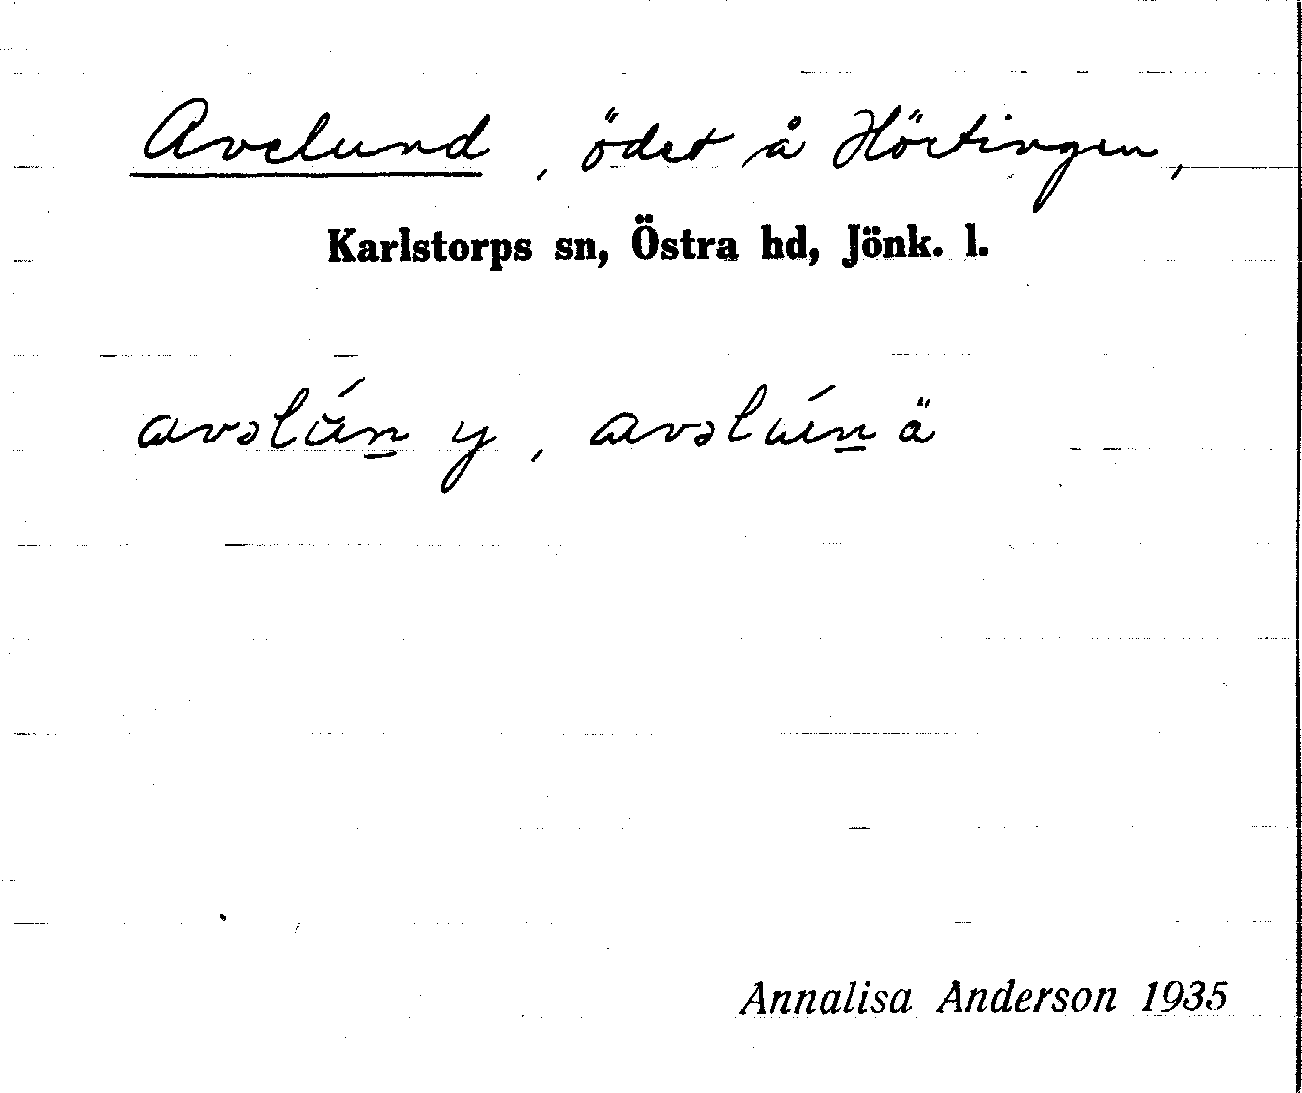 Avelund, ödet å Hörtingen,
Karlstorps sn, Östra hd, Jönk. l.
y, ä
Annalisa Anderson 1935